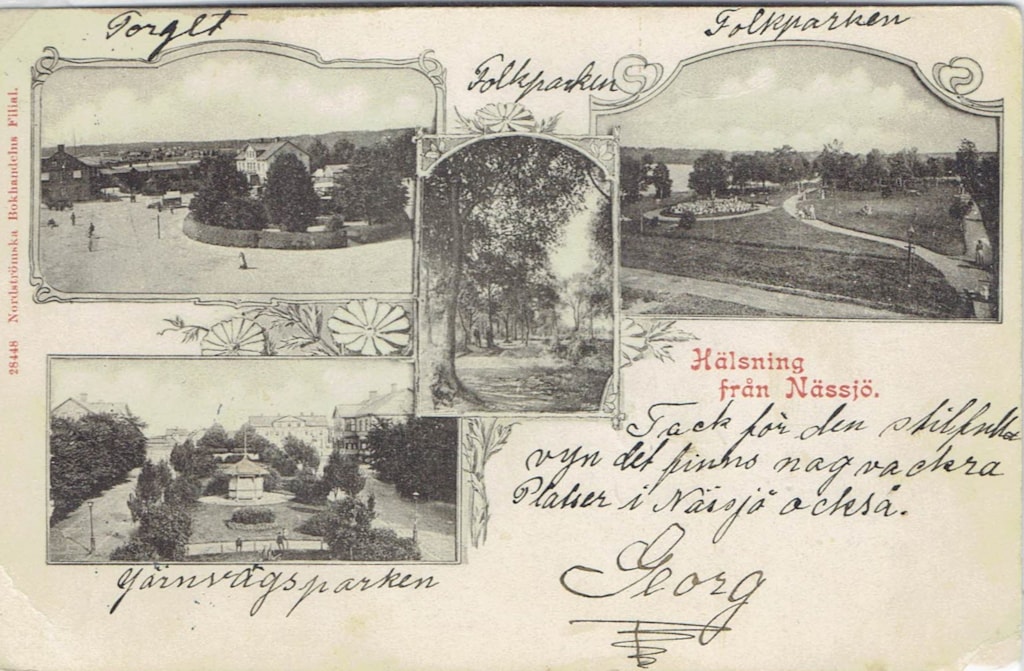 Torget
Folkparken
Folkparken
28448 Nordströmska Bokhandelns Filial.
Hälsning
från Nässjö.
Tack för den stilfulla
vyn det finns nog vackra
Platser i Nässjö också.
Georg
Järnvägsparken